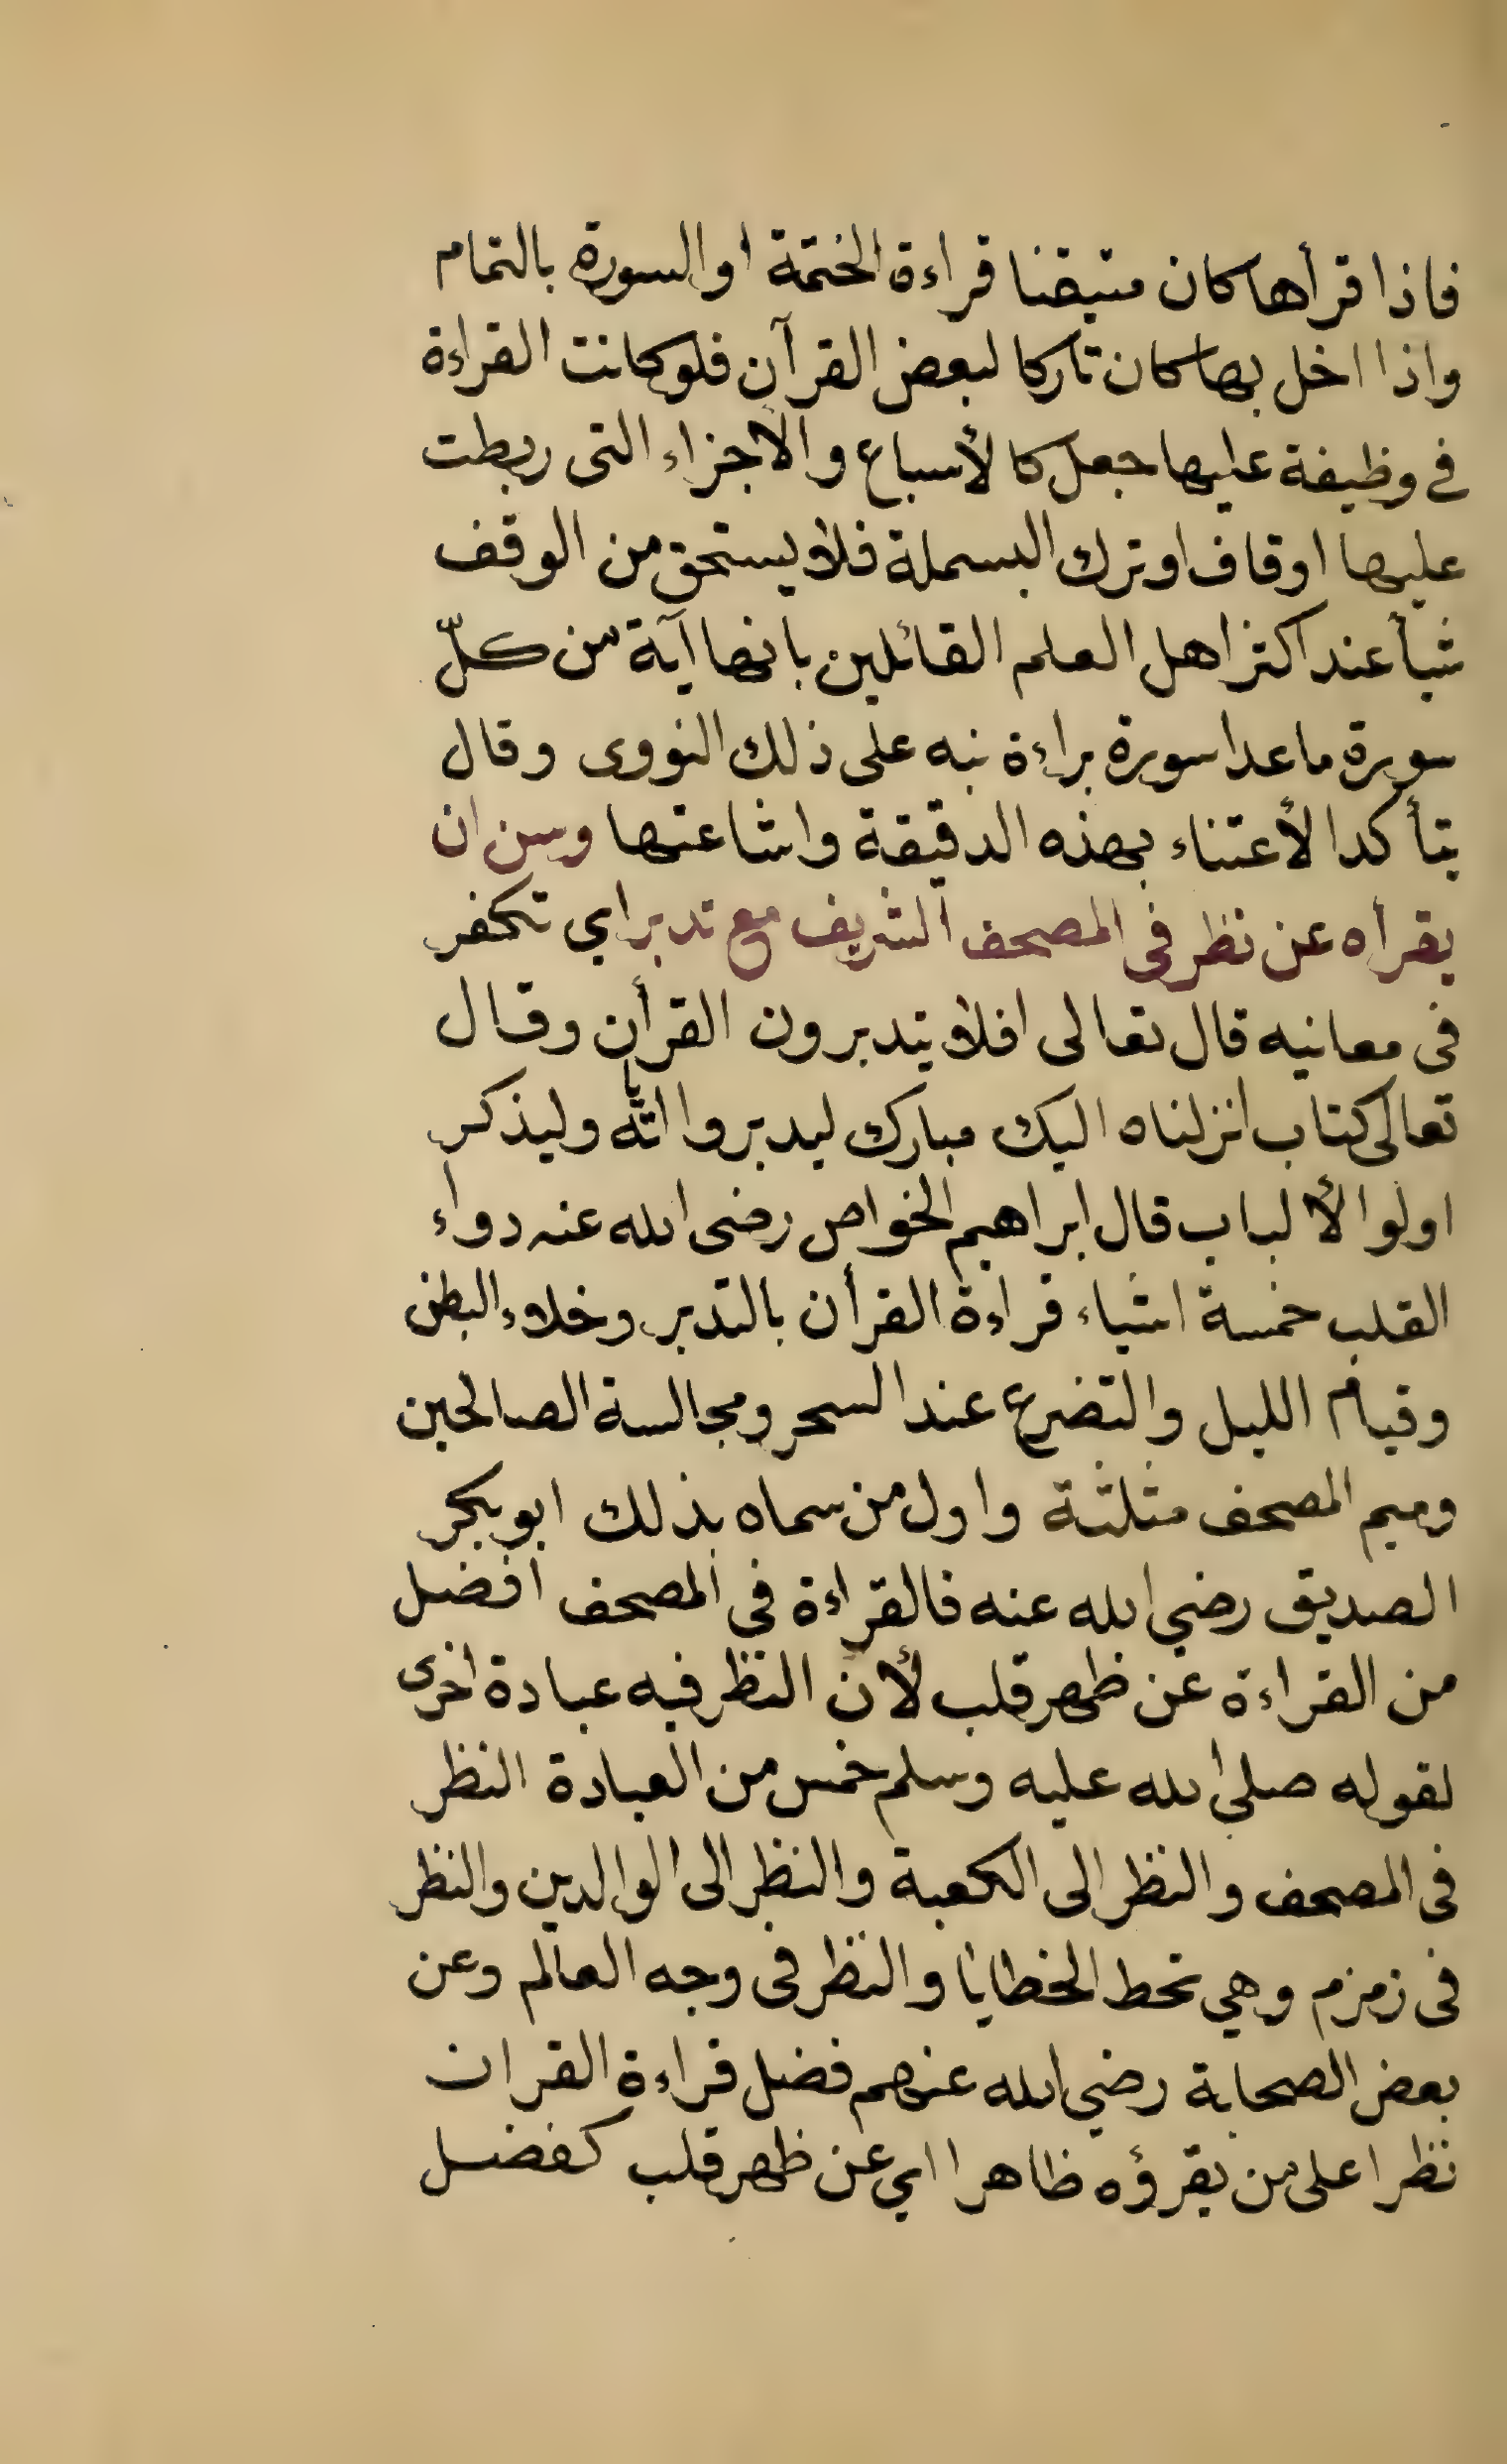 فاذا قرأها كان متيقنا قراءة الختمة او السورة بالتمام
واذا اخل بها كان تاركا لبعض القرآن فلو كانت القراءة
في وظيفة عليها جعل كالأسباع والأجزاء التى ربطت
عليها اوقاف او ترك البسملة فلا يستحق من الوقف
شيأ عند اكثر اهل العلم القائلين بانها آية من كلّ
سورة ما عدا سورة براءة نبه على ذلك النووى وقال
يتأكد الأعتناء بهذه الدقيقة واشاعتها وسن ان
يقرأه عن نظر فى المصحف الشريف مع تدبر اي تكفر
فى معانيه قال تعالى افلا يتدبرون القرأن وقال
تعالى كتاب انزلناه اليك مبارك ليدبروا اياته وليذكر
اولوا الألباب قال ابراهيم الخواص رضى الله عنه دواء
القلب خمسة اشياء قراءة القرأن بالتدبر وخلاء البطن
وقيام الليل والتضرع عند السحر ومجالسة الصالحين
وميم المصحف مثلثة واول من سماه بذلك ابو بكر
الصديق رضي الله عنه فالقراءة فى المصحف افضل
من القراءة عن ظهر قلب لأن النظر فيه عبادة اخرى
لقوله صلى الله عليه وسلم خمس من العبادة النظر
فى المصحف والنظر الى الكعبة والنظر الى الوالدين والنظر
فى زمزم وهي تحط الخطايا والنظر فى وجه العالم وعن
بعض الصحابة رضي الله عنهم فضل قراءة القران
نظرا على من يقرؤه ظاهرا اي عن ظهر قلب كفضل